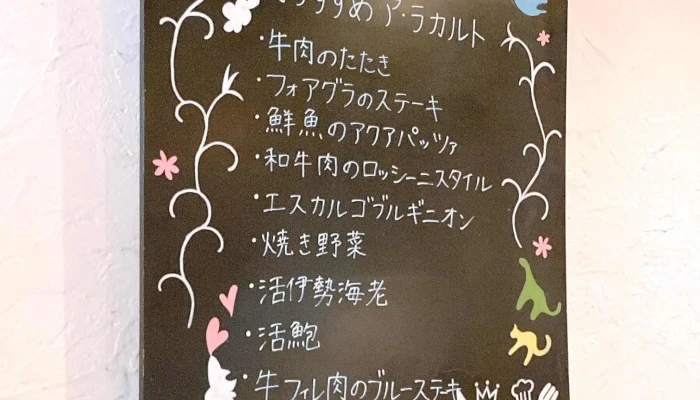 おすすめ ア・ラカルト
・牛肉のたたき
・フォアグラのステーキ
・鮮魚のアクアパッツァ
・和牛肉のロッシーニスタイル
・エスカルゴブルギニオン
・焼き野菜
・活伊勢海老
・活鮑
・牛フィレ肉のブルーステーキ